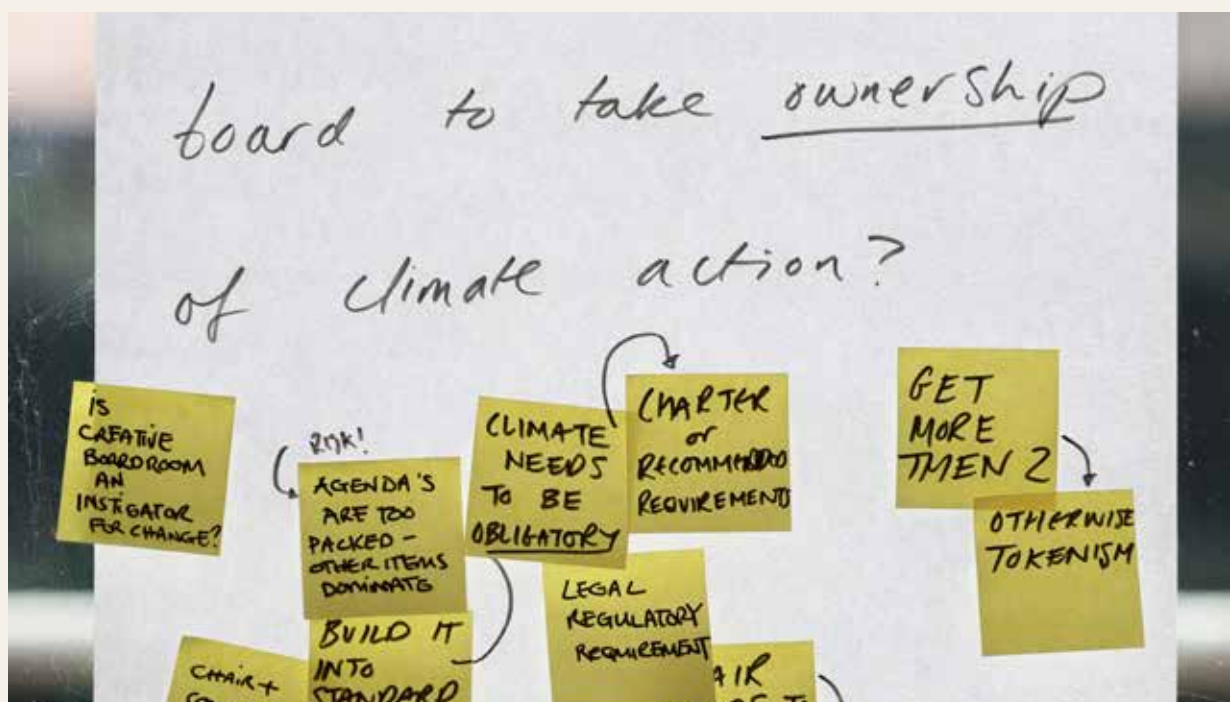 board to take ownership
of climate action?
is
CREATIVE
BOARDROOM
AN
INSTIGATOR
FOR CHANGE?
RISK!
AGENDA'S
ARE TOO
PACKED -
OTHER ITEMS
DOMINATE
CLIMATE
NEEDS
TO BE
OBLIGATORY
CHARTER
or
RECOMMENDED
REQUIREMENTS
GET
MORE
THEN 2
OTHERWISE
TOKENISM
LEGAL
REGULATORY
REQUIREMENT
BUILD IT
INTO
STANDARD
CHAIR +